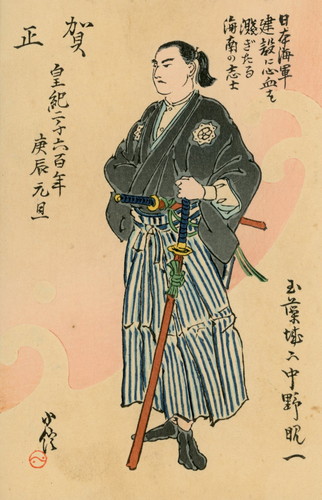 日本海軍
建設に心血を
濺ぎたる
海南の志士
賀
正
皇紀二千六百年
庚辰元旦
玉藻城下中野
一